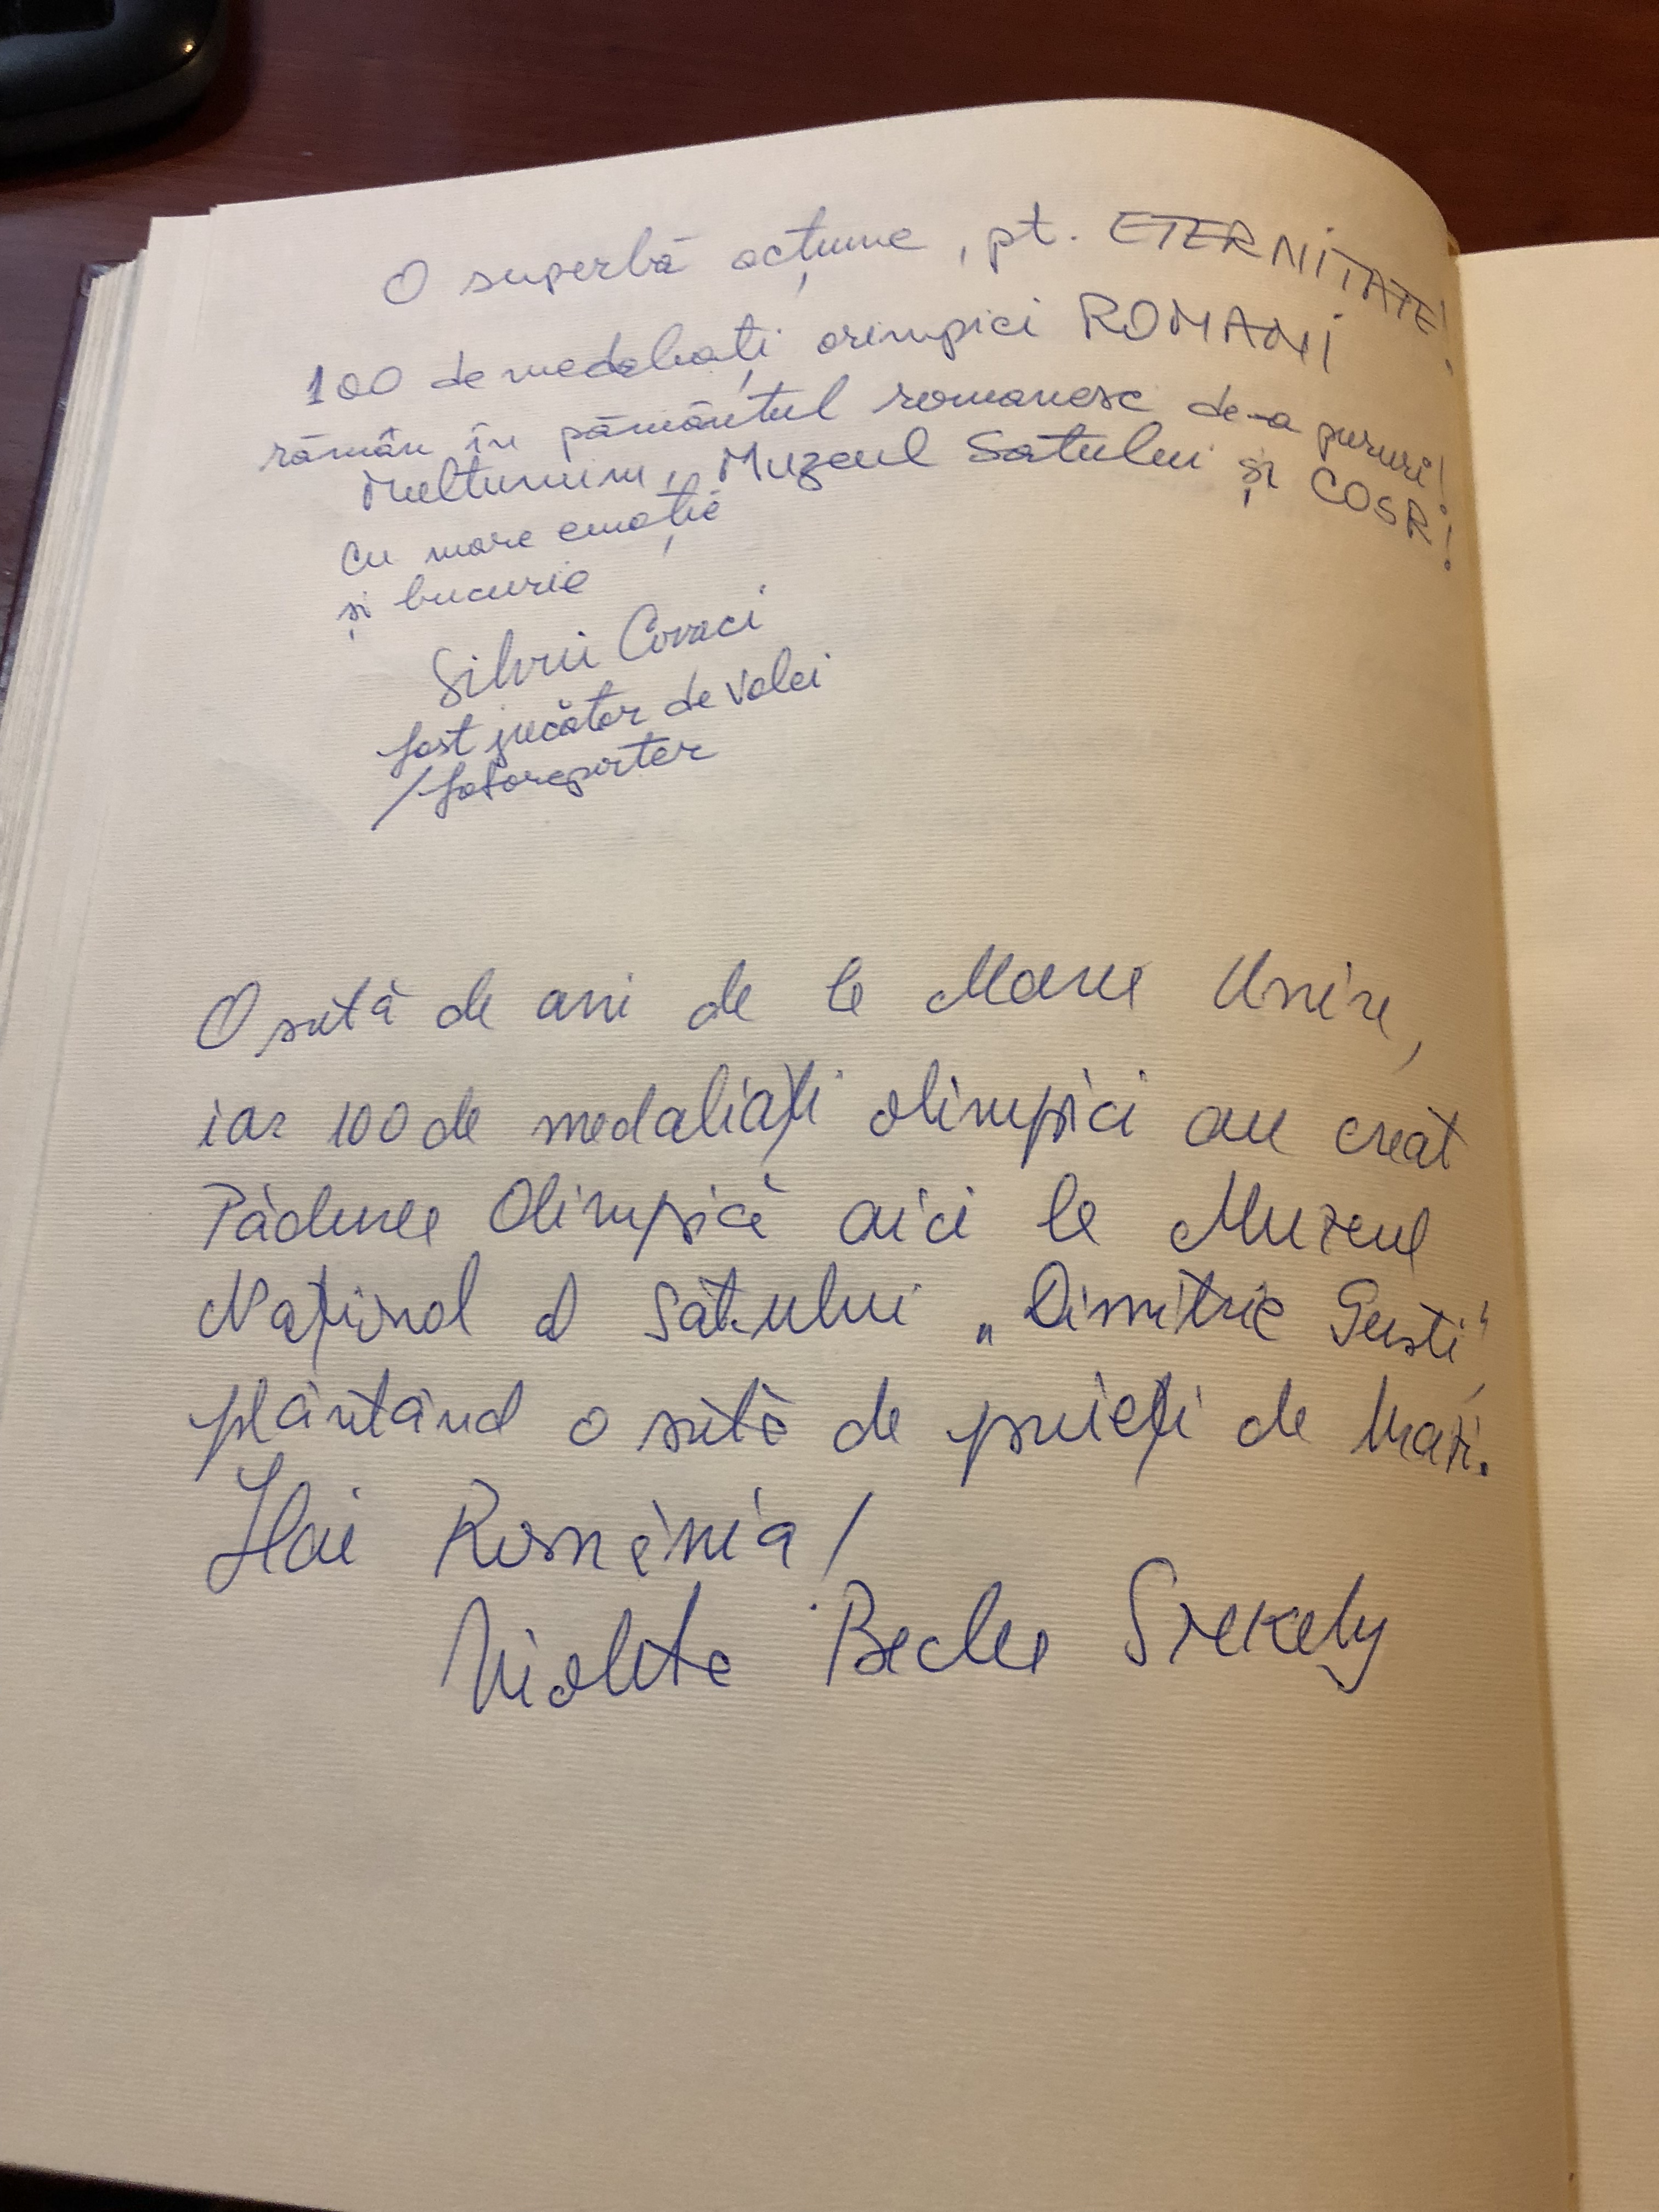 O superbă acțiune, pt. ETERNITATE!
100 de medaliați olimpici ROMANI
rămân în pământul romanesc de-a pururi!
Multumim, Muzeul Satului și COSR!
cu mare emoție
și bucurie
Silviu Covaci
fost jucător de volei
/fotoreporter
O sută de ani de la Marea Unire,
iar 100 de medaliați olimpici au creat
Pădurea Olimpică aici la Muzeul
Național al Satului „Dimitrie Gusti",
plantând o sută de puieți de brazi.
Hai România!
Violeta Beclea Szekely